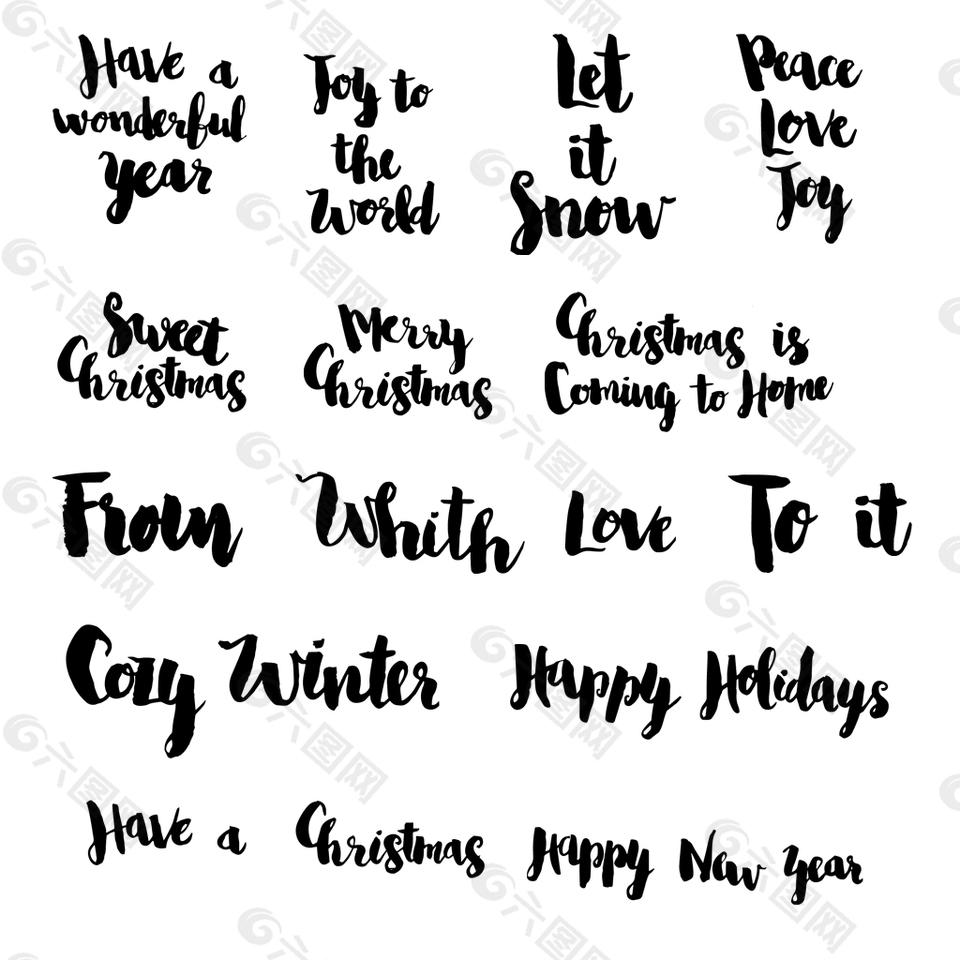 Have a
wonderful
year
Joy to
the
World
Let
it
Snow
Peace
Love
Joy
Sweet
Christmas
Merry
Christmas
Christmas is
Coming to Home
From
Whith
Love
To it
Cozy Winter
Happy Holidays
Have a
Christmas
Happy New year
六图网